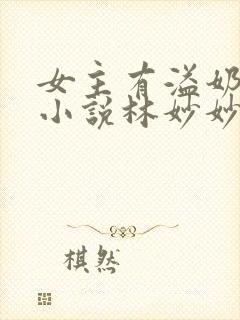 女主有溢奶
小说林妙妙
棋然